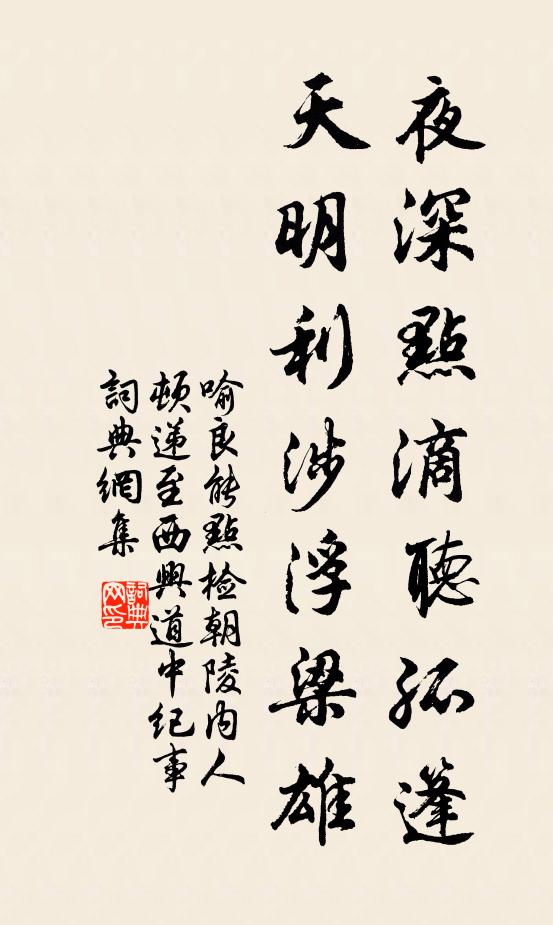 夜深點滴聽孤篷
天明利涉浮梁雄
喻良能點檢朝陵內人
頓遞至西興道中紀事
詞典網集
詞典
网印